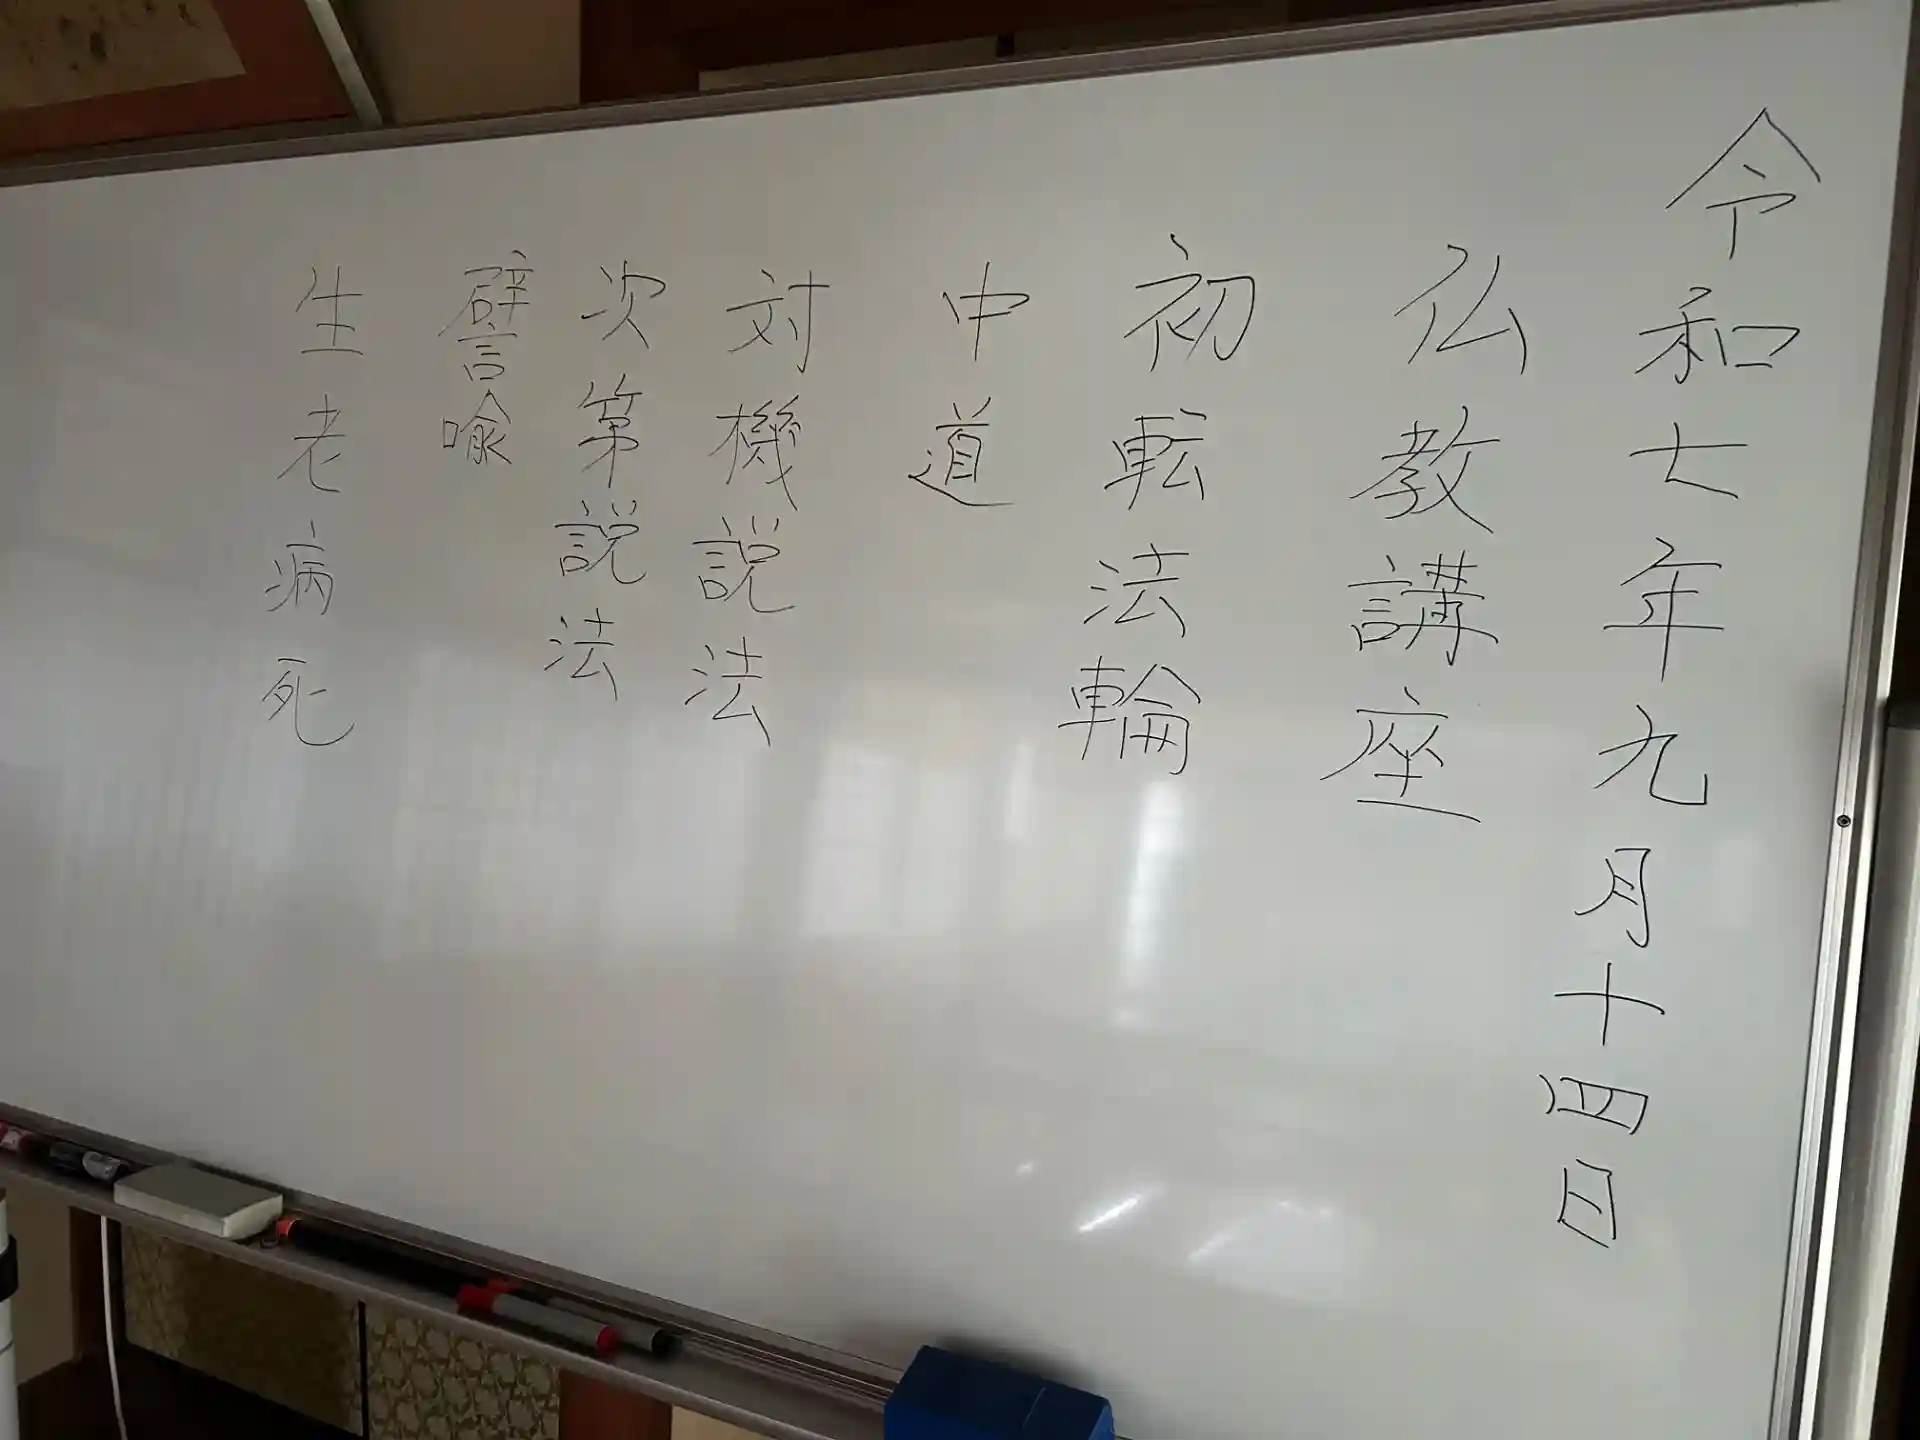 令和七年九月十四日
仏教講座
初転法輪
中道
対機説法
次第説法
譬喩
生老病死